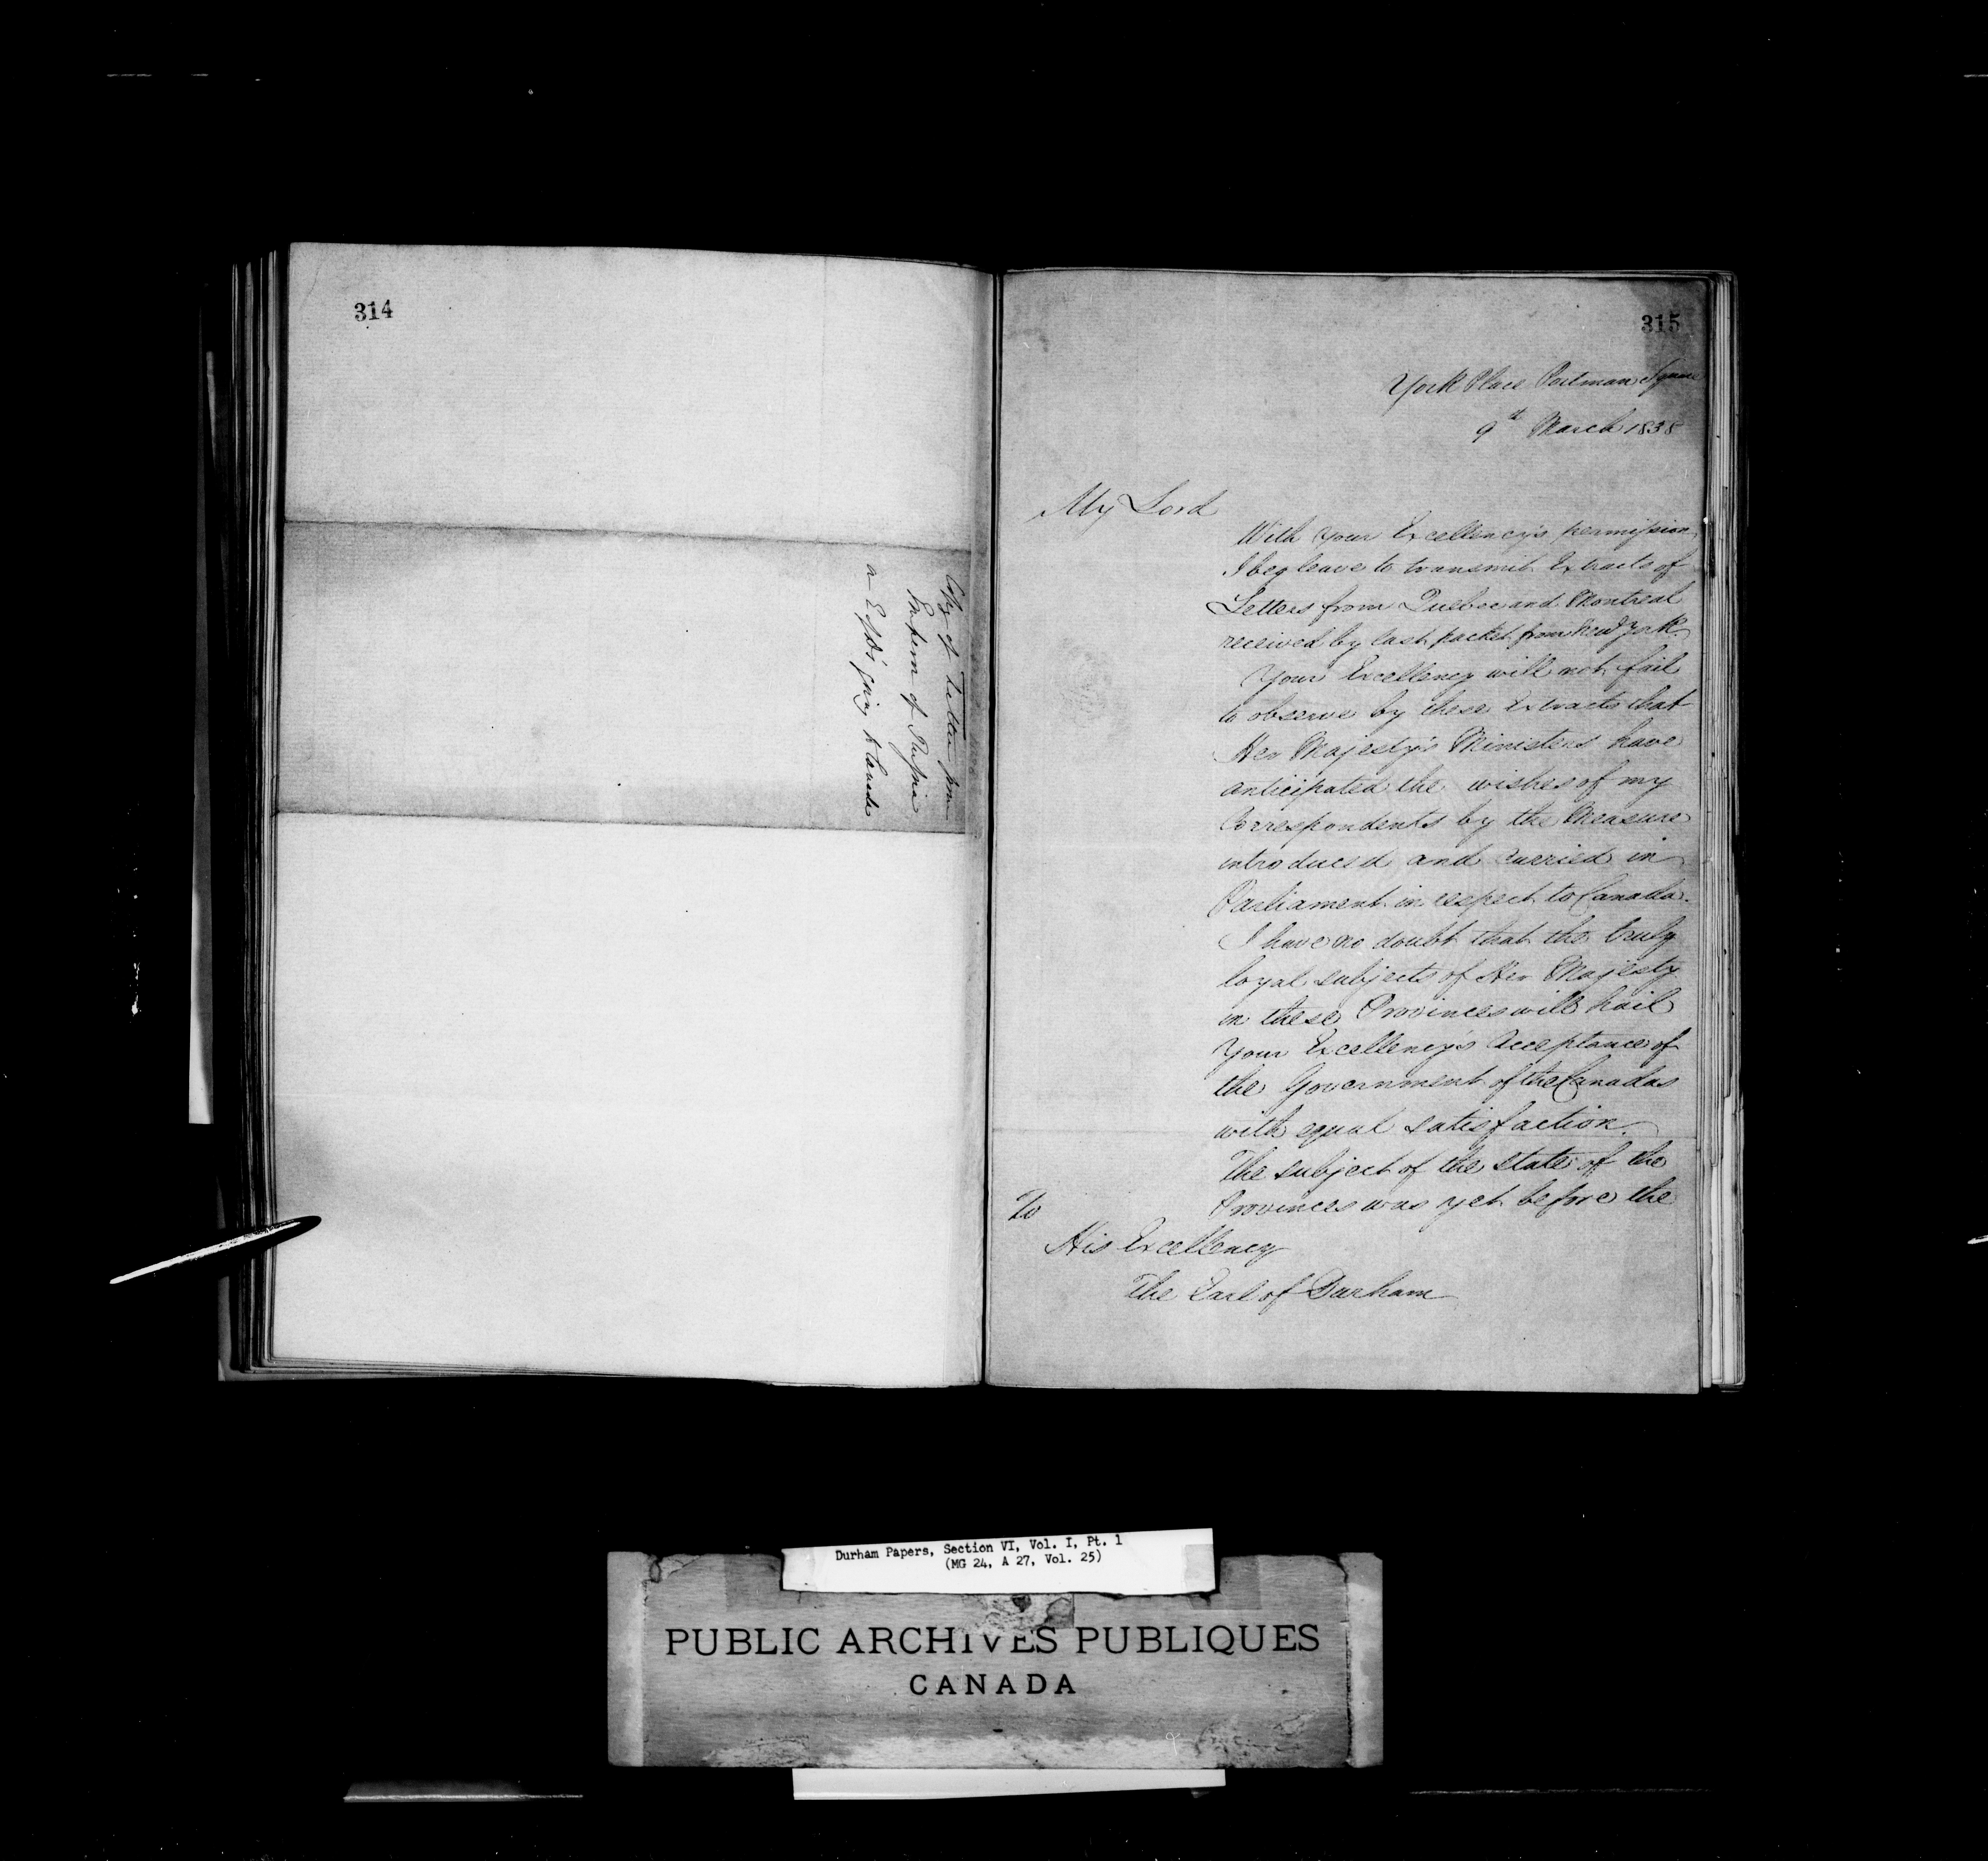 314
Copy of Letter from
Emperor of Russia
on Ld D's going to Canada
315
York Place Portman Square
9th March 1838
My Lord
With Your Excellency's permission
I beg leave to transmit Extracts of
Letters from Quebec and Montreal
received by last packet from New York.
Your Excellency will not fail
to observe by these Extracts that
Her Majesty's Ministers have
anticipated the wishes of my
Correspondents by the Measure
introduced and carried in
Parliament in respect to Canada.
I have no doubt that the truly
loyal subjects of Her Majesty
in these Provinces will hail
Your Excellency's Acceptance of
the Government of the Canadas
with equal satisfaction.
The subject of the state of the
Provinces was yet before the
To
His Excellency
The Earl of Durham
Durham Papers, Section VI, Vol. I, Pt. 1
(MG 24, A 27, Vol. 25)
PUBLIC ARCHIVES PUBLIQUES
CANADA